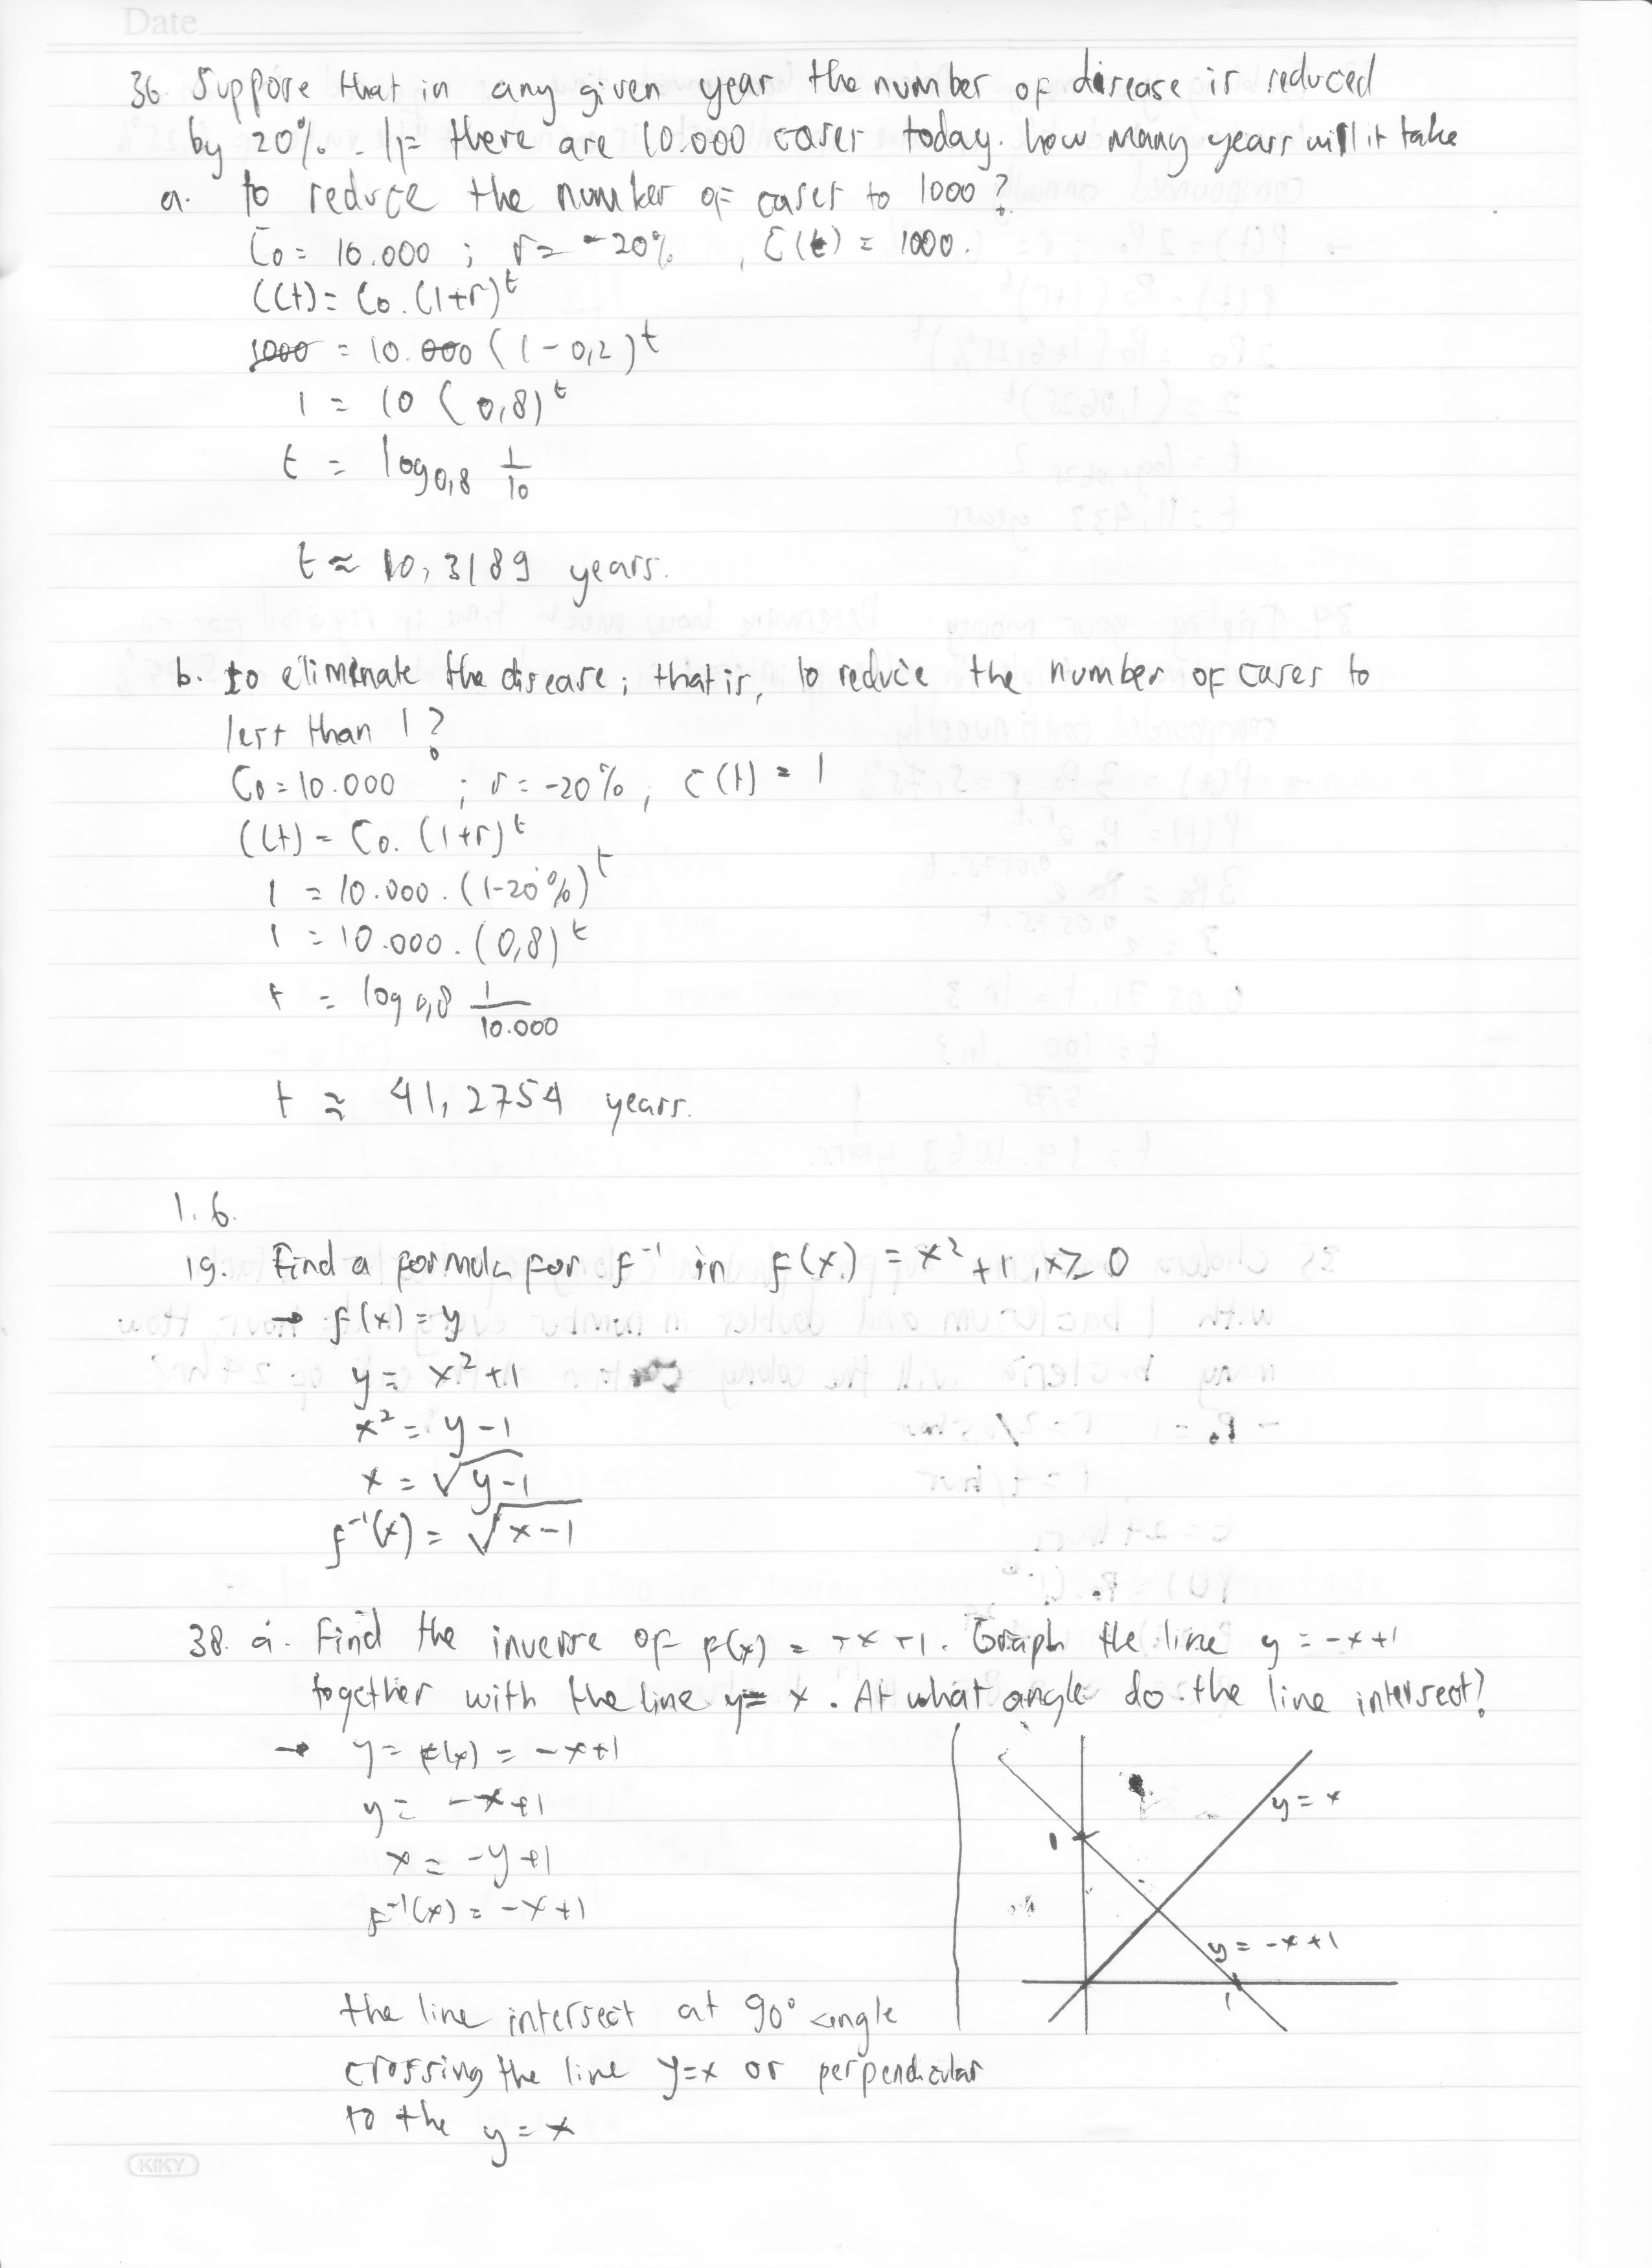 Date
36 Suppose that in any given year the number of disease is reduced
by 20%. If there are 10.000 cases today. how many years will it take
a. to reduce the number of cases to 1000?
C₀ = 10.000 ; r = -20% , C(t) = 1000.
C(t) = C₀. (1+r)ᵗ
1000 = 10.000 (1-0,2)ᵗ
1 = 10 (0,8)ᵗ
t = log₀,₈ 1/10
t ≈ 10,3189 years.
b. to eliminate the disease; that is, to reduce the number of cases to
less than 1?
C₀ = 10.000 ; r = -20% , C(t) = 1
C(t) = C₀. (1+r)ᵗ
1 = 10.000 . (1-20%)ᵗ
1 = 10.000 . (0,8)ᵗ
t = log 0,8 1/10.000
t ≈ 41,2754 years.
1.6.
19. Find a formula for f⁻¹ in f(x) = x² +1, x ≥ 0
→ f(x) = y
y = x² +1
x² = y - 1
x = √y-1
f⁻¹(x) = √x-1
38. a. Find the inverse of f(x) = -x+1. Graph the line y = -x+1
together with the line y = x. At what angle do the line intersect?
→ y = f(x) = -x+1
y = -x+1
x = -y+1
f⁻¹(x) = -x+1
y = x
1
y = -x+1
1
the line intersect at 90° angle
crossing the line y=x or perpendicular
to the y = x
KIKY